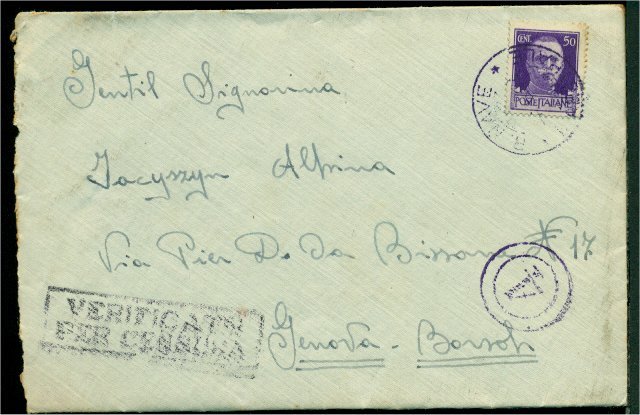 CENT. 50
POSTE ITALIANE
NAVE
Gentil Signorina
Jacyszyn
Via Pier D. Da Bissone N 17
VERIFICATO
PER CENSURA
Genova - Borzoli
A